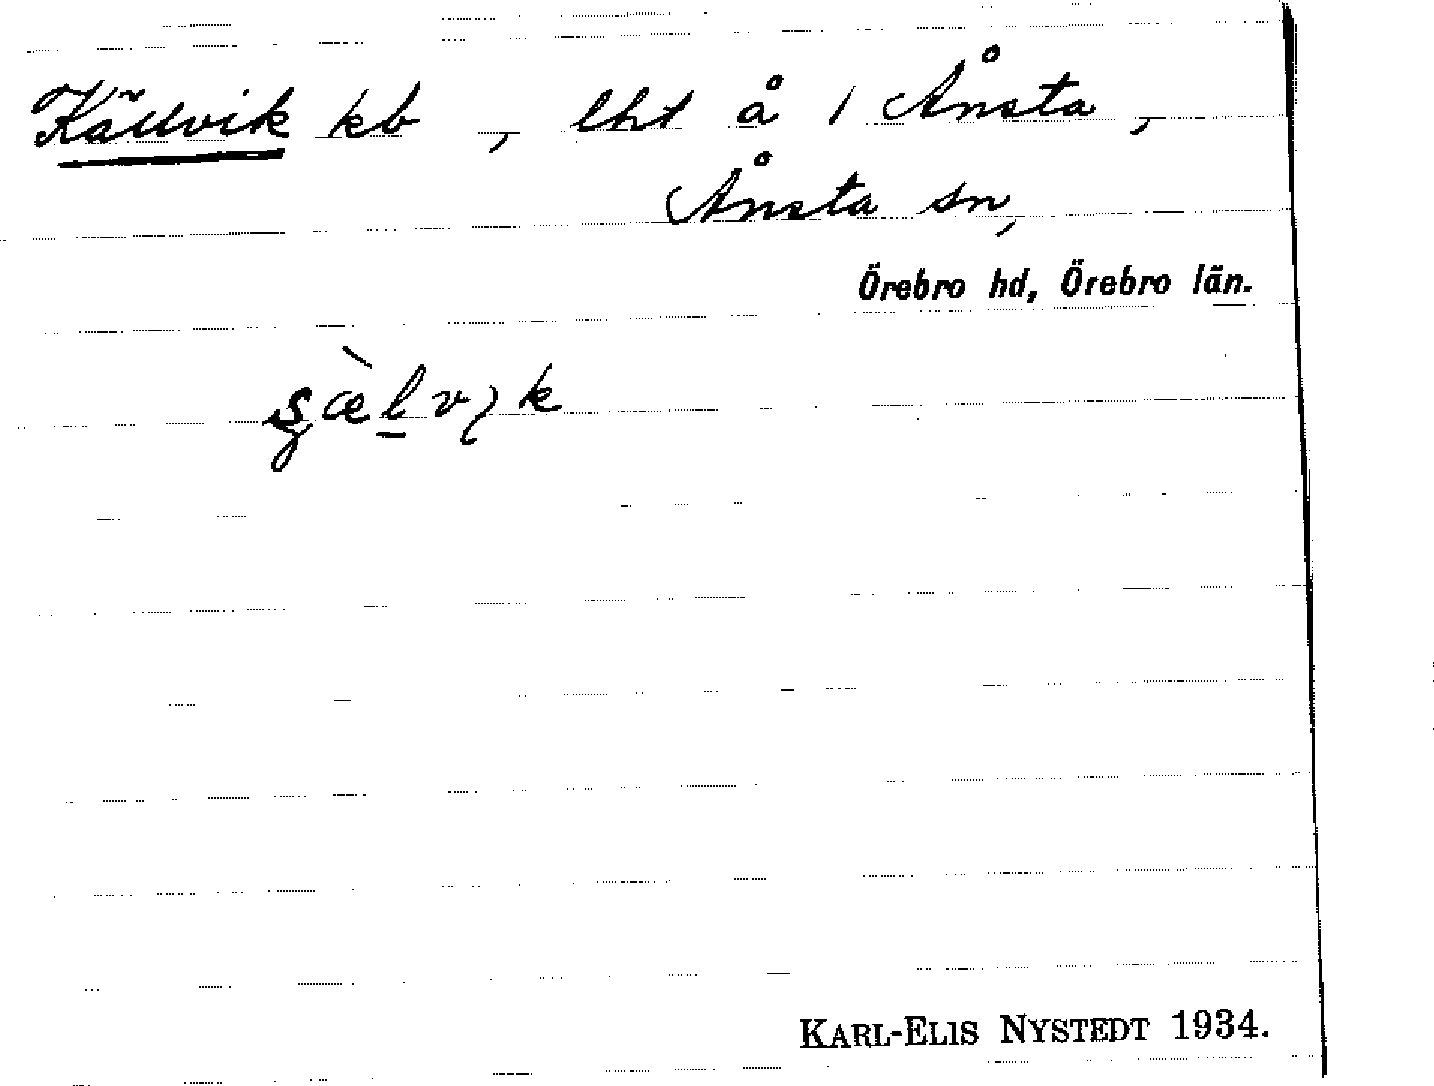 Källvik kb, lht å 1 Ånsta,
Ånsta sn,
Örebro hd, Örebro län.
KARL-ELIS NYSTEDT 1934.